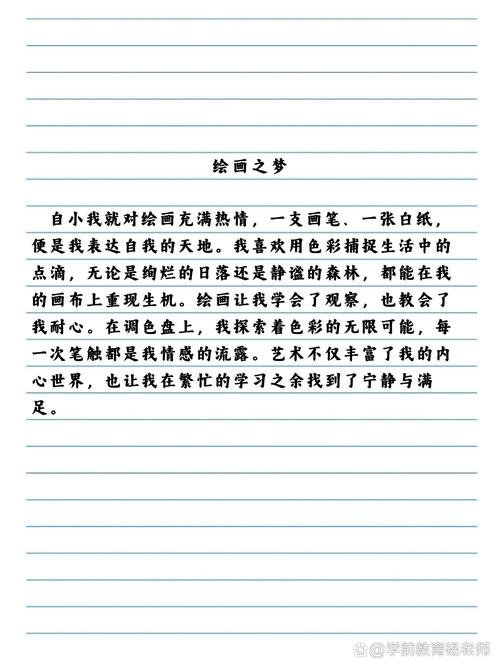 绘画之梦
自小我就对绘画充满热情，一支画笔、一张白纸，
便是我表达自我的天地。我喜欢用色彩捕捉生活中的
点滴，无论是绚烂的日落还是静谧的森林，都能在我
的画布上重现生机。绘画让我学会了观察，也教会了
我耐心。在调色盘上，我探索着色彩的无限可能，每
一次笔触都是我情感的流露。艺术不仅丰富了我的内
心世界，也让我在繁忙的学习之余找到了宁静与满
足。
@学前教育杨老师